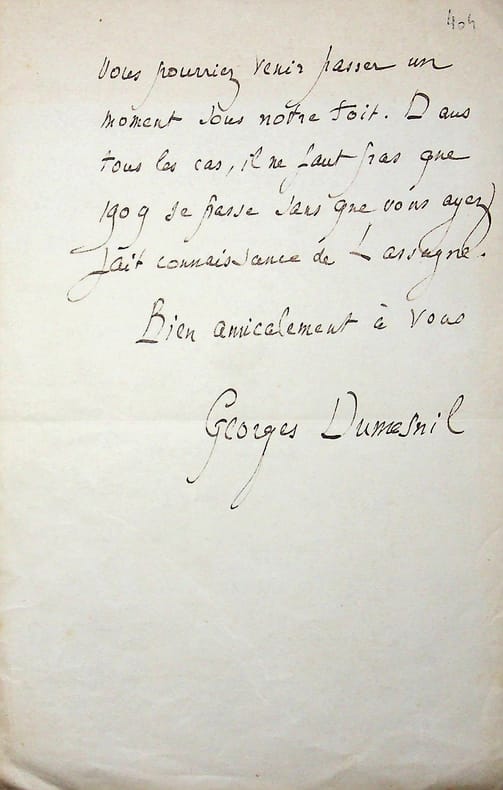 404
Vous pourriez venir passer un
moment sous notre toit. Dans
tous les cas, il ne faut pas que
1909 se passe sans que vous ayez
fait connaissance de Lassagne.
Bien amicalement à vous
Georges Dumesnil